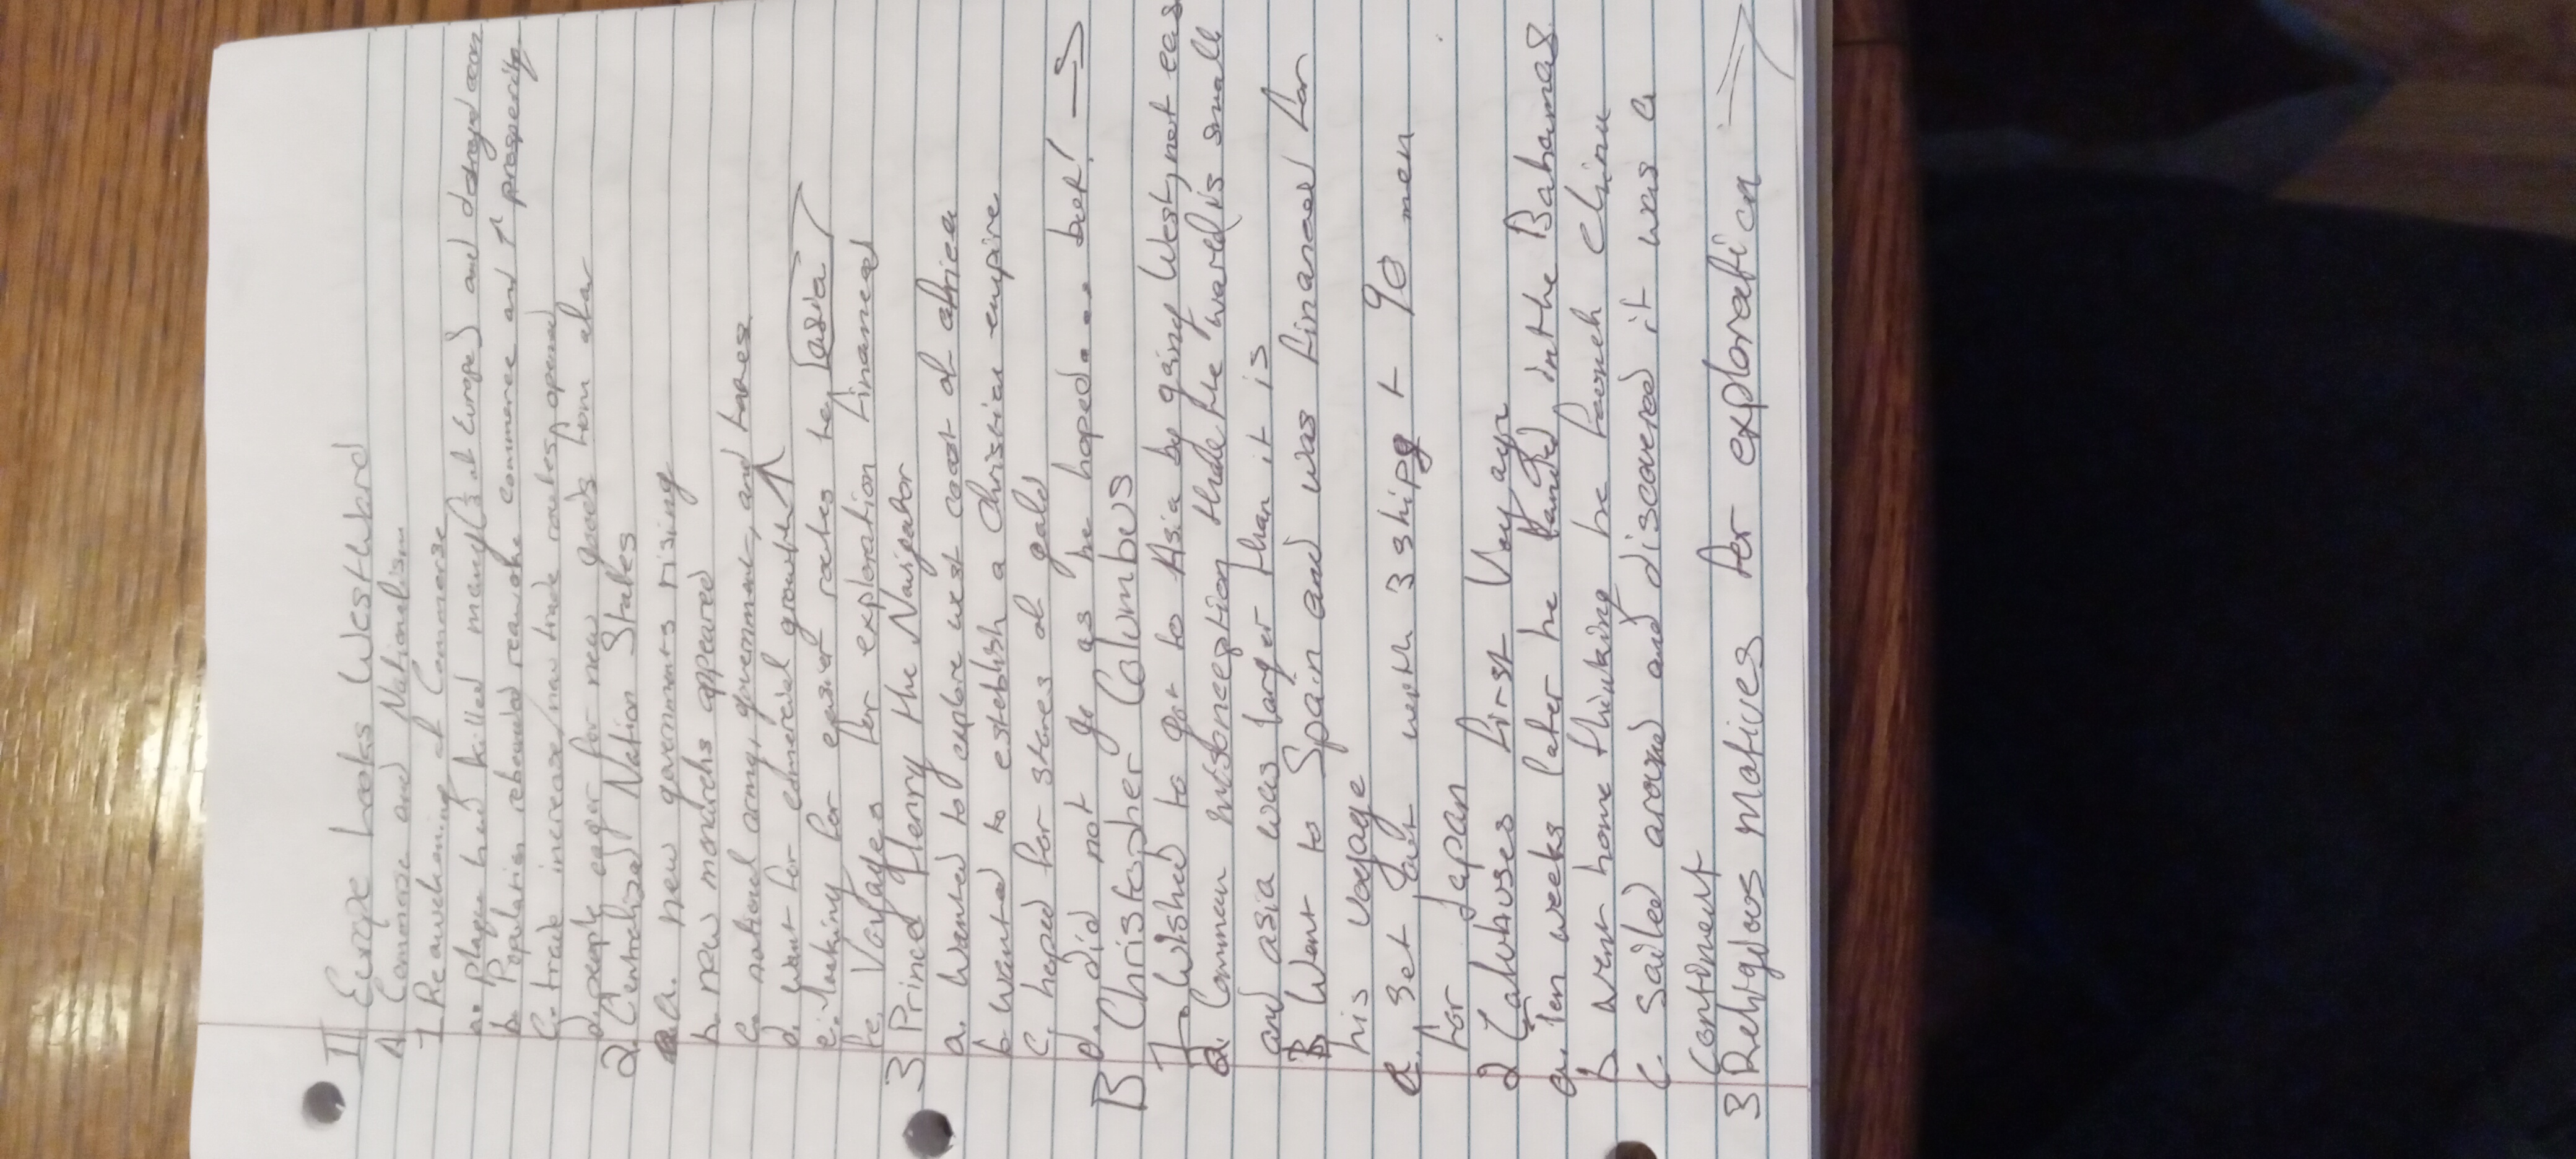 II Europe Looks Westward
A Commerse and Nationalism
1 Reawakening of Commerse
a. Plague had killed many (1/3 of Europe) and
b. Population rebounded reawoke commerce and ↑ prosperity
c. trade increase/new trade routes opened
d. people eager for new goods from afar
2 Centralized Nation States
a. new governments rising
b. new monarchs appeared
c. national army, government, and taxes
d. want for comercial growth ↑
e. looking for easier routes to asia
fe. Voyages for exploration financed
3 Prince Henry the Navigator
a. wanted to explore west coast of africa
b wanted to establish a Christian empire
c. hoped for stores of gold
d. did not go as he hoped... but! →
B Christopher Columbus
1 Wished to get to Asia by going West, not eas
a. Common misconception the world is small
and asia was larger than it is
B Went to Spain and was financed for
his voyage
c. set out with 3 ships + 90 men
for Japan
2 Columbuses first Voyage
a. Ten weeks later he landed in the Bahamas
b went home thinking he found china
c. sailed around and discovered it was a
continent
3 Religious motives for exploration →